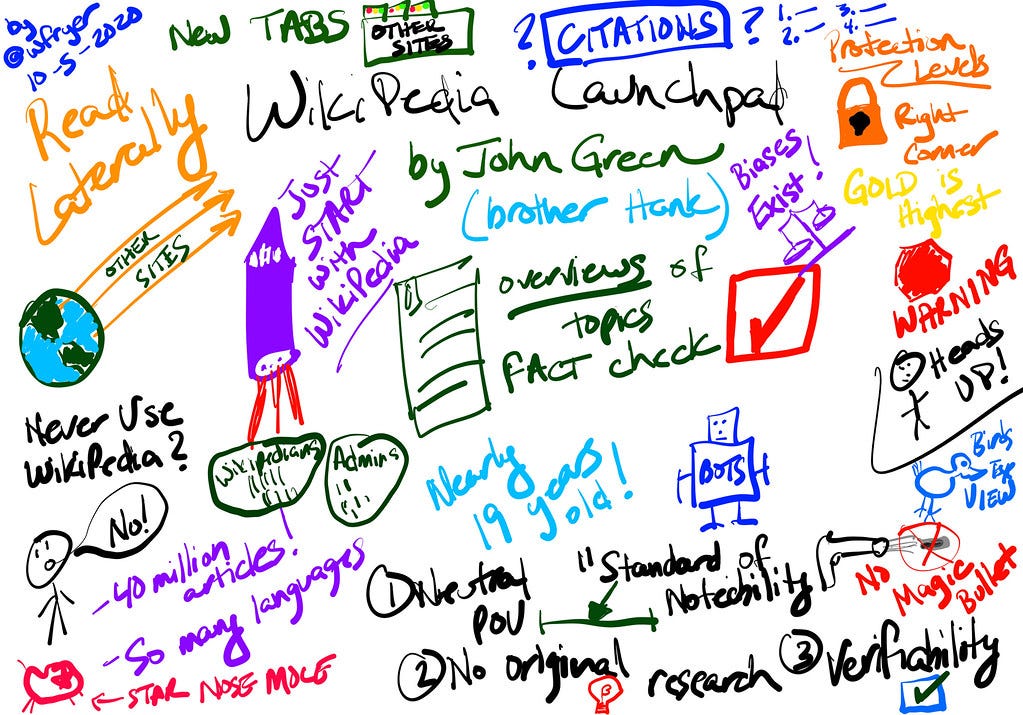 by
@wfryer
10-5-2020
New TABS
OTHER
SITES
? CITATIONS ?
1.
2.
3.
4.
Protection
Levels
Right
Corner
GOLD is
Highest
WARNING
Heads
UP!
Birds
Eye
VIEW
No
Magic
Bullet
Read
Laterally
OTHER
SITES
WikiPedia Launchpad
by John Green
(brother Hank)
Biases
Exist!
Just
START
with
WikiPedia
overviews of
topics
FACT check
Never Use
WikiPedia?
No!
Wikipedians
Admins
Nearly
19 years
old!
BOTS
- 40 million
articles!
- So many languages
← STAR NOSE MOLE
① Neutral
POV
"Standard of
Notechility
② No original research
③ Verifiability